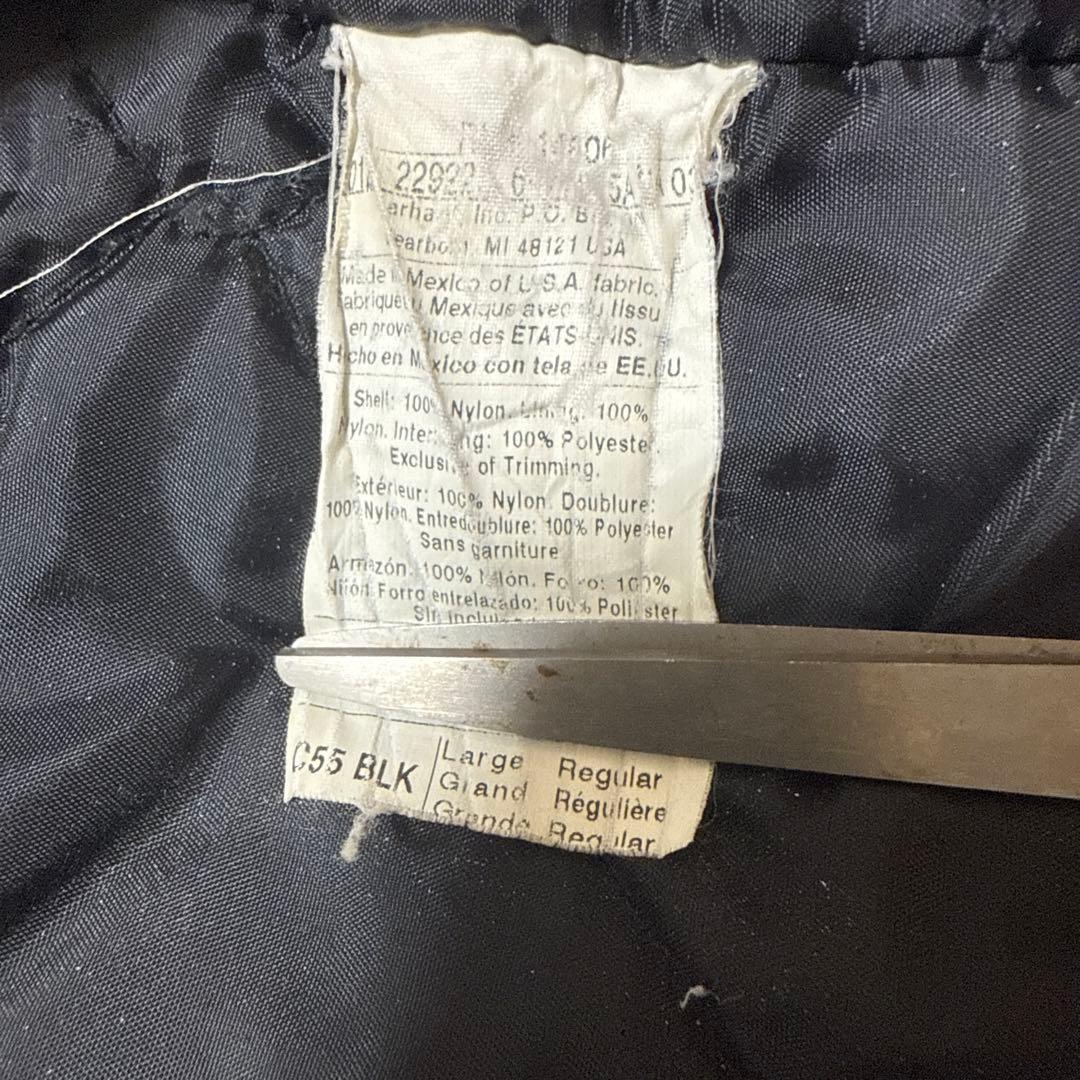 22922 6 5A 03
Inc. P.O.
MI 48121 USA
Made Mexico of U.S.A. fabric.
Mexique avec du tissu
en provenance des ÉTATS-UNIS.
Hecho en México con tela de EE.UU.
Shell: 100% Nylon. Lining: 100%
Nylon. Interlining: 100% Polyester.
Exclusive of Trimming.
Extérieur: 100% Nylon. Doublure:
100% Nylon. Entredoublure: 100% Polyester
Sans garniture
Armazón: 100% Nilón. Forro: 100%
Nilón Forro entrelazado: 100% Poliéster
Sin
C55 BLK Large Regular
Grand Régulière
Grande Regular